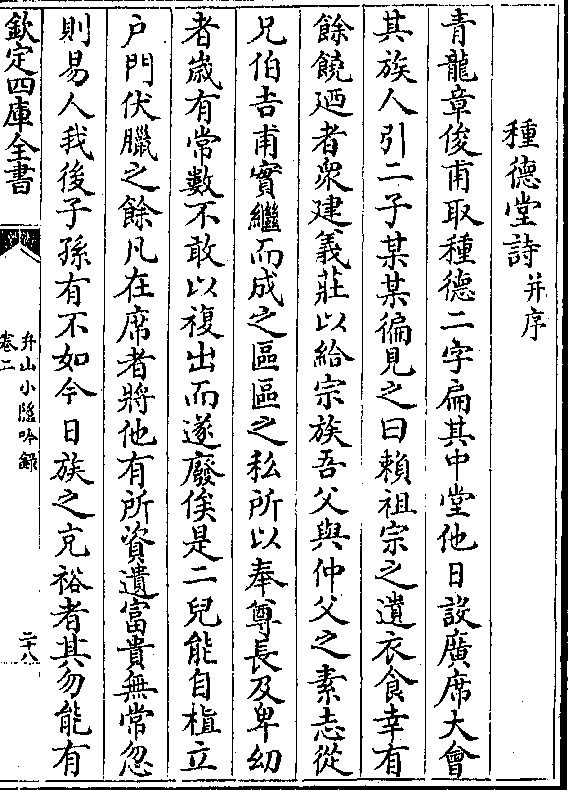 種德堂詩并序
青龍章俊甫取種德二字扁其中堂他日設廣席大會
其族人引二子某某徧見之曰賴祖宗之遺衣食幸有
餘饒廼者衆建義莊以給宗族吾父與仲父之素志從
兄伯吉甫實繼而成之區區之私所以奉尊長及卑幼
者歳有常數不敢以複出而遂廢俟是二兒能自植立
户門伏臘之餘凡在席者將他有所資遺富貴無常忽
則易人我後子孫有不如今日族之克裕者其勿能有
欽定四庫全書
弁山小隱吟録
卷二
二十八